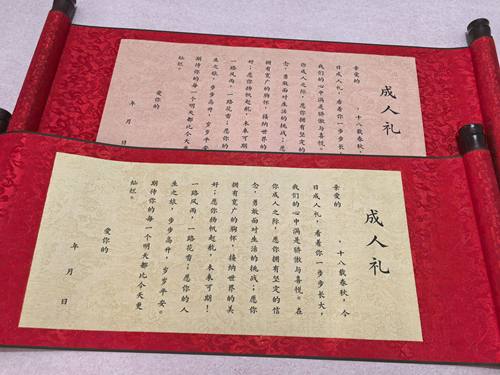 成人礼
亲爱的 ，十八载春秋，
日成人礼，看着你一步步长
我们的心中满是骄傲与喜悦。
你成人之际，愿你拥有坚定的
念，勇敢面对生活的挑战；愿
拥有宽广的胸怀，接纳世界的
好；愿你扬帆起航，未来可期！
一路风雨，一路花香；愿你的
生之旅，步步高升，岁岁平安。
期待你的每一个明天都比今天更
灿烂。
爱你的
年 月 日
成人礼
亲爱的 ，十八载春秋，今
日成人礼，看着你一步步长大，
我们的心中满是骄傲与喜悦。在
你成人之际，愿你拥有坚定的信
念，勇敢面对生活的挑战；愿你
拥有宽广的胸怀，接纳世界的美
好；愿你扬帆起航，未来可期！
一路风雨，一路花香；愿你的人
生之旅，步步高升，岁岁平安。
期待你的每一个明天都比今天更
灿烂。
爱你的
年 月 日